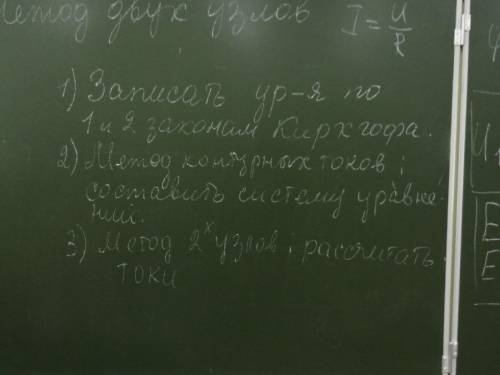 Метод двух узлов I = U/R
1) Записать ур-я по
1 и 2 законам Кирхгофа.
2) Метод контурных токов;
составить систему уравне-
ний.
3) Метод 2х узлов; рассчитать
токи
Е
Е